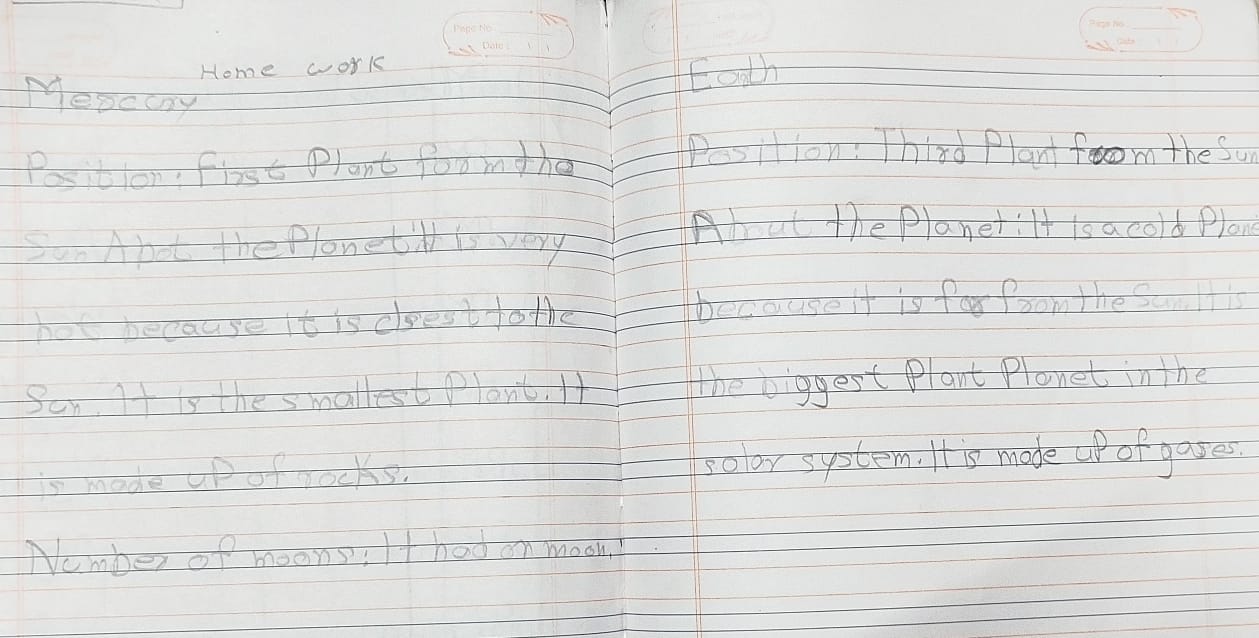 Page No
Date :
Home work
Mercury
Position : First Plant form the
Sun Abot the Planet : It is very
hot because it is closest to the
Sun. It is the smallest Plant. It
is made up of rocks.
Number of moons : It had on moon.
Page No
Date
Earth
Position : Third Plant from the Sun
About the Planet : It is a cold Plane
because it is far from the Sun. It is
the biggest Plant Planet in the
solar system. It is made up of gases.